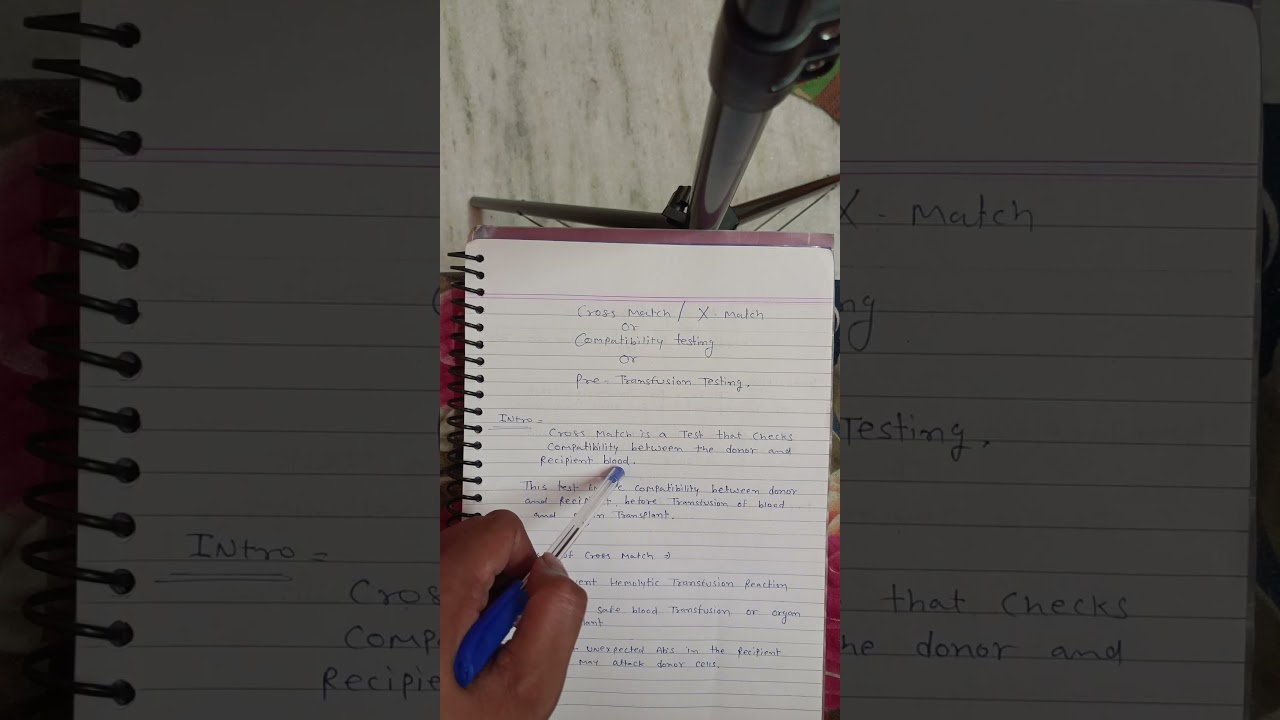 Cross Match / X-Match
or
Compatibility testing
or
Pre-Transfusion Testing.
INtro =
Cross Match is a Test that checks
compatibility between the donor and
Recipient blood.
This test compatibility between donor
and before Transfusion of blood
and Transplant.
of Cross Match →
Hemolytic Transfusion Reaction
safe blood Transfusion or organ
unexpected Abs in the Recipient
may attack donor cells.